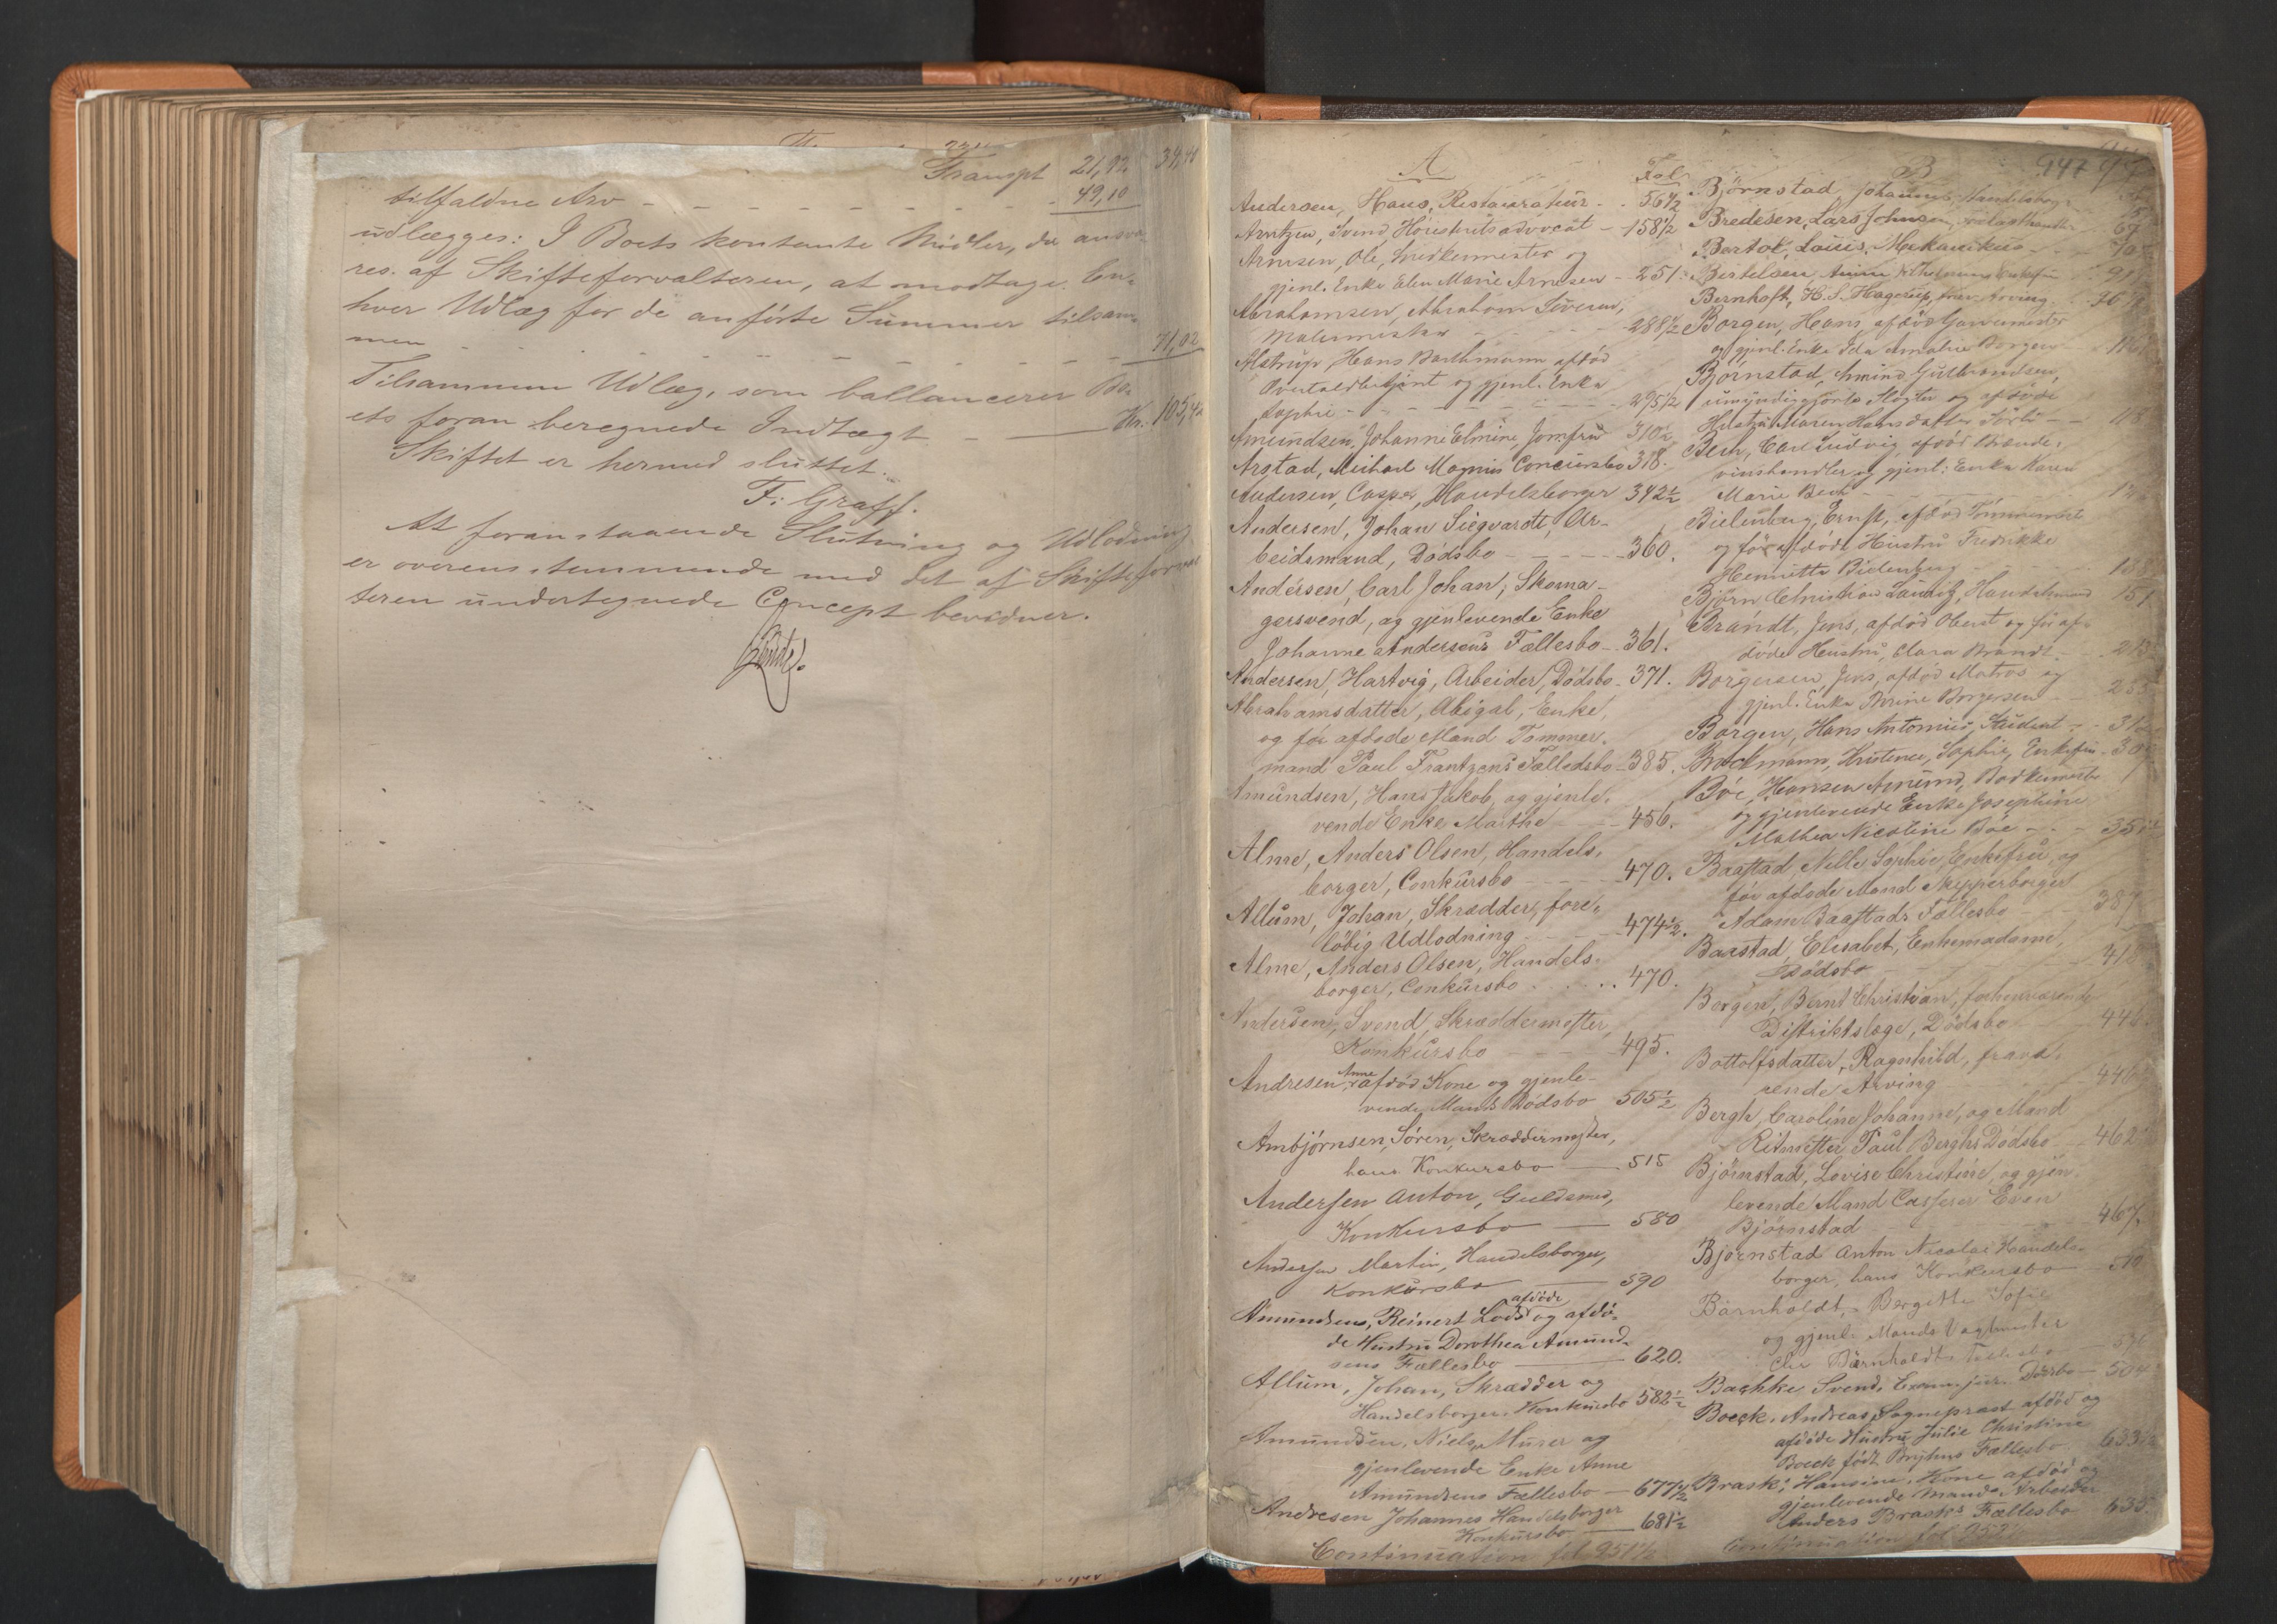 Transpt 21,92. 34,40
tilfaldne Arv - - - - - - - - 49,10
udlægges: I Boets kontante Midler, der ansva-
res af Skifteforvalteren, at modtage. En-
hver Udlæg for de anførte Summer tilsam-
men - - - - - - - - 71,02
Tilsammen Udlæg, som ballancerer Bo-
ets foran beregnede Indtægt - Kr. 105,42
Skiftet er hermed sluttet.
F: Graff.
At foranstaaende Slutning og Udlodning
er overensstemmende med det af Skifteforval
teren undertegnede Concept bevidner.
947
A
Fol
Andersen, Hans, Restauratør - - 56½
Arntzen, Svend, Høiesteretsadvocat - 158½
Arnesen, Ole, Snedkermester og
gjenl. Enke Elen Marie Arnesen - 251.
Abrahamsen, Abraham Severin,
Malermester - - - - 288½
Alstrup, Hans Bachmann afdød
og gjenl. Enke
Sophie - - - - - 295½
Amundsen, Johanne Elmine, Jomfru 310½
Arstad, Michael Magnus Concursbo 318.
Andersen, Casper, Handelsborger 342½
Andersen, Johan Siegvardt, Ar-
beidsmand, Dødsbo - - - - 360.
Andersen, Carl Johan, Skoma-
gersvend, og gjenlevende Enke
Johanne Andersens Fællesbo - 361.
Andersen, Hartvig, Arbeider, Dødsbo - 371.
Abrahamsdatter, Abigal, Enke,
og før afdøde Mand Tømmer-
mand Paul Frantzens Fælledsbo - 385.
Amundsen, Hans Jakob, og gjenle-
vende Enke Marthe - - - 456.
Alme, Anders Olsen, Handels-
borger, Conkursbo - - - - 470.
Allum, Johan, Skrædder, fore-
løbig Udlodning - - - - 474½.
Alme, Anders Olsen, Handels-
borger, Conkursbo . . . . 470.
Andersen, Svend, Skræddermester,
Konkursbo - - - - 495.
Andresen, Anne afdød Kone og gjenle-
vende Mands Dødsbo 505½
Ambjørnsen, Søren, Skræddermester,
hans Konkursbo — 515
Andersen Anton, Guldsmed,
Konkursbo — 580
Andersen Martin, Handelsborger,
Konkursbo — 590
Amundsen, Reinert Lods afdøde og afdø-
de Hustru Dorothea Amund-
sens Fællesbo — 620.
Allum, Johan, Skrædder og
Handelsborger, Konkursbo 582½
Amundsen, Niels, Murer og
gjenlevende Enke Anne
Amundsens Fællesbo — 677½
Andresen Johannes Handelsborger
Konkursbo — 681½
Continuation fol 951½
B
Bjørnstad, Johannes, Handelsborger
Bredesen, Lars Johnsen, 67
Bertol, Louis, Mekanikus - - 70
Bertelsen, Anne 91
Bernhoft, H. S. Hagerup, 96½
Borgen, Hans, afdød Garvermester
og gjenl. Enke Ida Amalie Borgen
Bjørnstad, Amund Gulbrandsen,
umyndiggjorte Slagter og afdøde
Hustru Maren Hansdatter - - 118
Bech, Carl Ludvig, afdød Brænde-
vinshandler og gjenl: Enke Karen
Marie Bech
Bielenberg, Ernst, afdød Tømmermester
og før afdøde Hustru Fredrikke
Henriette Bielenberg
Bjørn Christian Ludvig, Handelsmand 151
Brandt, Jens, afdød Oberst og før af-
døde Hustru, Clara Brandt - 213
Borgersen, Jens, afdød Matros og
gjenl. Enke Borgersen -
Borgen, Hans Antonius, Student - -
Brockmann, Kristence, Sophie, Enkefru - 30
Bøe, Hansen Amund, Bødkermester
og gjenlevende Enke Josephine
Mathea Nicoline Bøe - - 351½
Baastad, Nelle Sophie, Enkefru, og
før afdøde Mand Skipperborger
Adam Baastads Fællesbo 387
Baastad, Elisabet, Enkemadame,
Dødsbo 418
Borgen, Bernt Christian, forhenværende
Distriktslæge, Dødsbo 446
Bottolfsdatter, Ragnhild, fravæ-
rende Arving 446
Bergh, Caroline Johanne, og Mand
Ritmester Paul Berghs Dødsbo 462
Bjørnstad, Lovise Christine, og gjen-
levende Mand Casserer Even
Bjørnstad 467.
Bjørnstad Anton Nicolai Handels-
borger, hans Konkursbo — 510
Barnholdt, Bergitte Sofie
og gjenl. Mands Vagtmester
Barnholdts Fællesbo
Bachke, Svend, Exam. jur. Dødsbo - 504
Boeck, Andreas, Sogneprest afdød og
afdøde Hustru Julie Christine
Boeck født Bryhns Fællesbo 633½
Brask, Hansine, Kone afdød og
gjenlevende Mands Arbeider
Anders Brasks Fællesbo 635.
Continuation fol 952